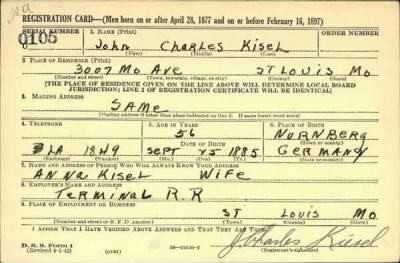 REGISTRATION CARD—(Men born on or after April 28, 1877 and on or before February 16, 1897)
SERIAL NUMBER 1. NAME (Print) ORDER NUMBER
0105 John Charles Kisel
(First) (Middle) (Last)
2. PLACE OF RESIDENCE (Print)
3007 Mo Ave St Louis Mo
(Number and street) (Town, township, village, or city) (County) (State)
[THE PLACE OF RESIDENCE GIVEN ON THE LINE ABOVE WILL DETERMINE LOCAL BOARD
JURISDICTION; LINE 2 OF REGISTRATION CERTIFICATE WILL BE IDENTICAL]
3. MAILING ADDRESS
SAME
[Mailing address if other than place indicated on line 2. If same insert word same]
4. TELEPHONE 5. AGE IN YEARS 6. PLACE OF BIRTH
56 NURNBERG
DATE OF BIRTH (Town or county)
LA 1849 Sept 25 1885 GERMANY
(Exchange) (Number) (Mo.) (Day) (Yr.) (State or country)
7. NAME AND ADDRESS OF PERSON WHO WILL ALWAYS KNOW YOUR ADDRESS
ANNA KISEL WIFE
8. EMPLOYER'S NAME AND ADDRESS
TERMINAL R.R
9. PLACE OF EMPLOYMENT OR BUSINESS
ST LOUIS MO
(Number and street or R. F. D. number) (Town) (County) (State)
I AFFIRM THAT I HAVE VERIFIED ABOVE ANSWERS AND THAT THEY ARE TRUE.
D. S. S. Form 1
(Revised 4-1-42) (over) J. Charles Kiesel
(Registrant's signature)